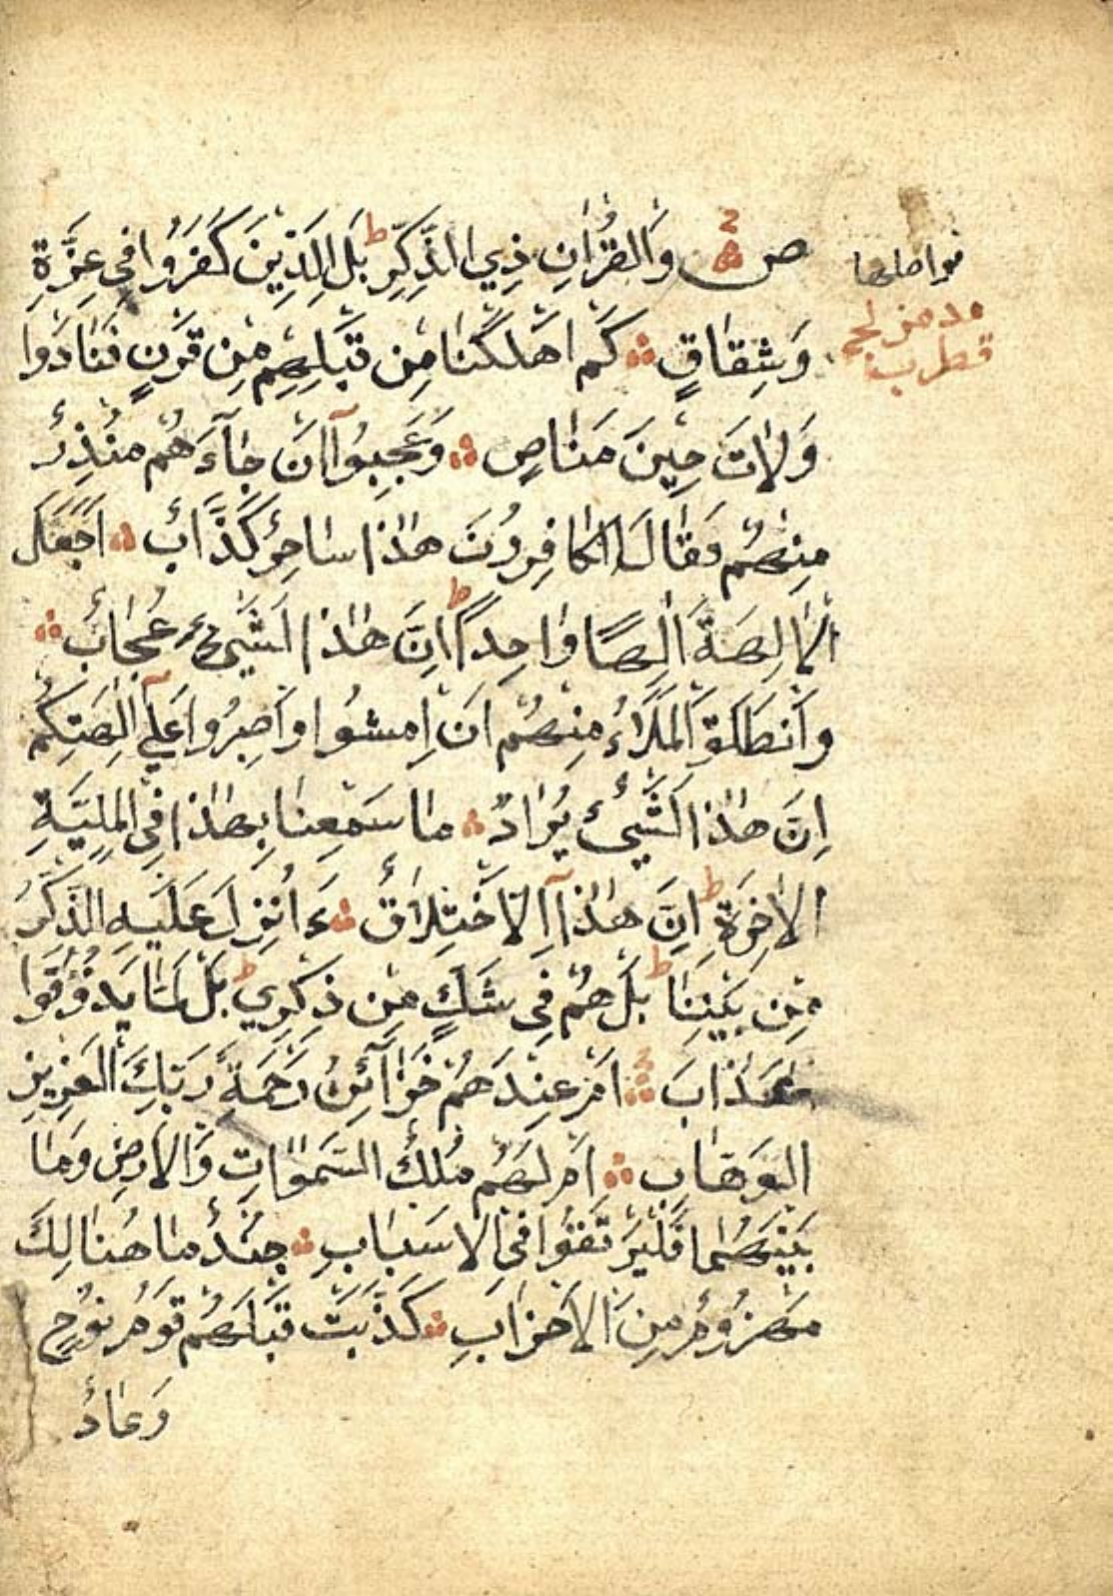 ص وَالقُرْاٰنِ ذِي الذِّكْرِ ط بَلِ الَّذِيْنَ كَفَرُوْا فِي عِزَّةٍ
وَشِقَاقٍ كَمْ اَهْلَكْنَا مِنْ قَبْلِهِمْ مِنْ قَرْنٍ فَنَادَوْا
وَلَاتَ حِيْنَ مَنَاصٍ وَعَجِبُوْآ اَنْ جَآءَهُمْ مُنْذِرٌ
مِنْهُمْ وَقَالَ الكَافِرُوْنَ هٰذَا سَاحِرٌ كَذَّابٌ اَجَعَلَ
الْاٰلِهَةَ اِلٰهًا وَاحِدًا ط اِنَّ هٰذَا لَشَيْءٌ عُجَابٌ
وَانْطَلَقَ الْمَلَاُ مِنْهُمْ اَنِ امْشُوْا وَاصْبِرُوْا عَلٰٓى اٰلِهَتِكُمْ
اِنَّ هٰذَا لَشَيْئٌ يُرَادُ مَا سَمِعْنَا بِهٰذَا فِي الْمِلَّةِ
الْاٰخِرَةِ ط اِنْ هٰذَا اِلَّا اخْتِلَاقٌ ءَاُنْزِلَ عَلَيْهِ الذِّكْرُ
مِنْ بَيْنِنَا ط بَلْ هُمْ فِي شَكٍّ مِنْ ذِكْرِي ط بَلْ لَمَّا يَذُوْقُوْا
عَذَابَ اَمْ عِنْدَهُمْ خَزَآئِنُ رَحْمَةِ رَبِّكَ الْعَزِيْزِ
الْوَهَّابِ اَمْ لَهُمْ مُلْكُ السَّمٰوَاتِ وَالْاَرْضِ وَمَا
بَيْنَهُمَا فَلْيَرْتَقُوْا فِي الْاَسْبَابِ جُنْدٌ مَا هُنَالِكَ
مَهْزُوْمٌ مِنَ الْاَحْزَابِ كَذَّبَتْ قَبْلَهُمْ قَوْمُ نُوْحٍ
وَعَادٌ
فواصلها
قطرب